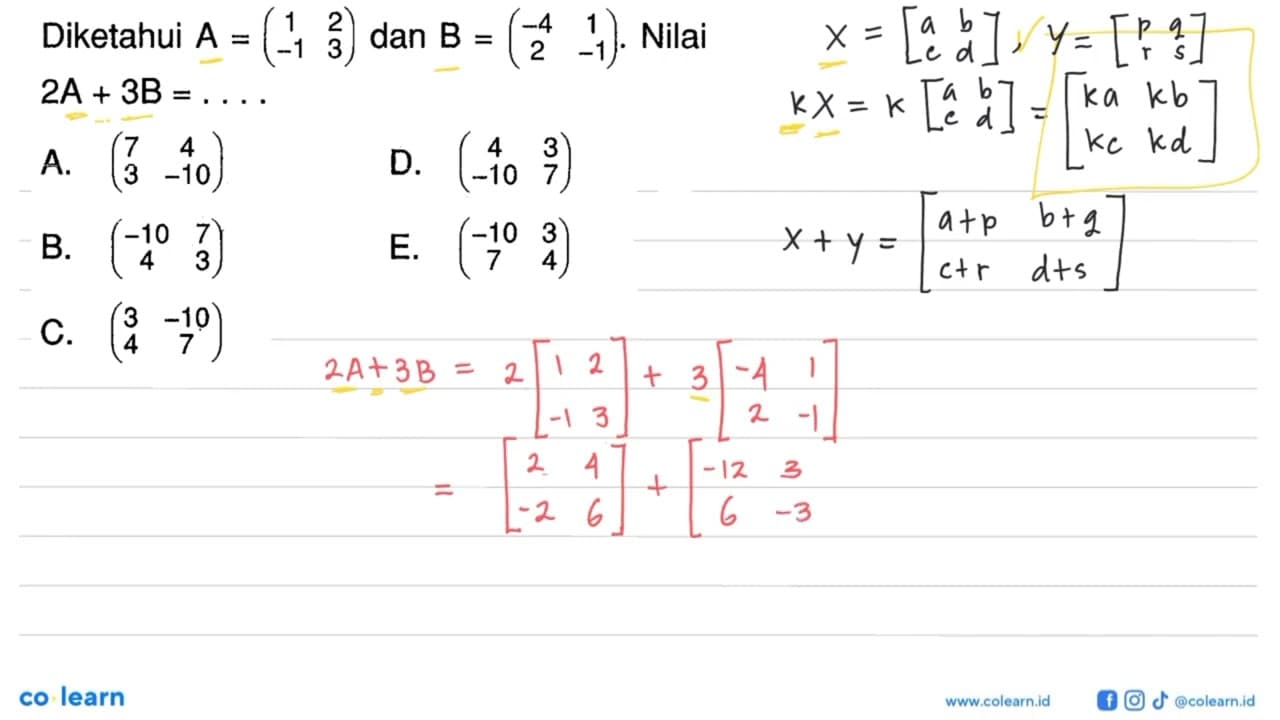 Diketahui A = (1 2 -1 3) dan B = (-4 1 2 -1). Nilai
2A + 3B = . . . .
A. (7 4 3 -10)
D. (4 3 -10 7)
B. (-10 7 4 3)
E. (-10 3 7 4)
C. (3 -10 4 7)
X = [a b c d], Y = [p q r s]
kX = k [a b c d] = [ka kb kc kd]
X + Y = [a+p b+q c+r d+s]
2A+3B = 2 [1 2 -1 3] + 3 [-4 1 2 -1]
= [2 4 -2 6] + [-12 3 6 -3
co learn
www.colearn.id
@colearn.id